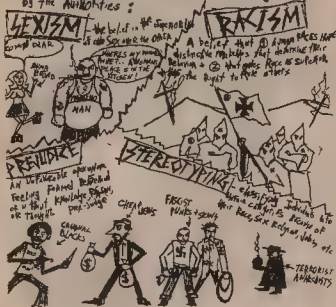 by THE AUTHORITIES :
SEXISM
the belief in the superiority
of one sex over the other
RACISM
A belief that ① human races have
distinctive make ups that determine their
behaviour & ② that ones race is superior
& has the right to rule others
COMIN DEAR
WHERES MY
A WOMANS
PLACE IS IN THE
KITCHEN!
MACHO
MAN
PREJUDICE
AN UNFAVORABLE opinion or
Feeling Formed Beforehand
or without Knowledge, Reason,
or Thought. pre-judge
STEREOTYPING
classifying individuals to
certain
their Race Sex Religion Jobs, etc.
CRIMINAL
BLACKS
CHEAP JEWS
FASCIST
PUNKS + SKINS
TERRORIST
ANARCHISTS